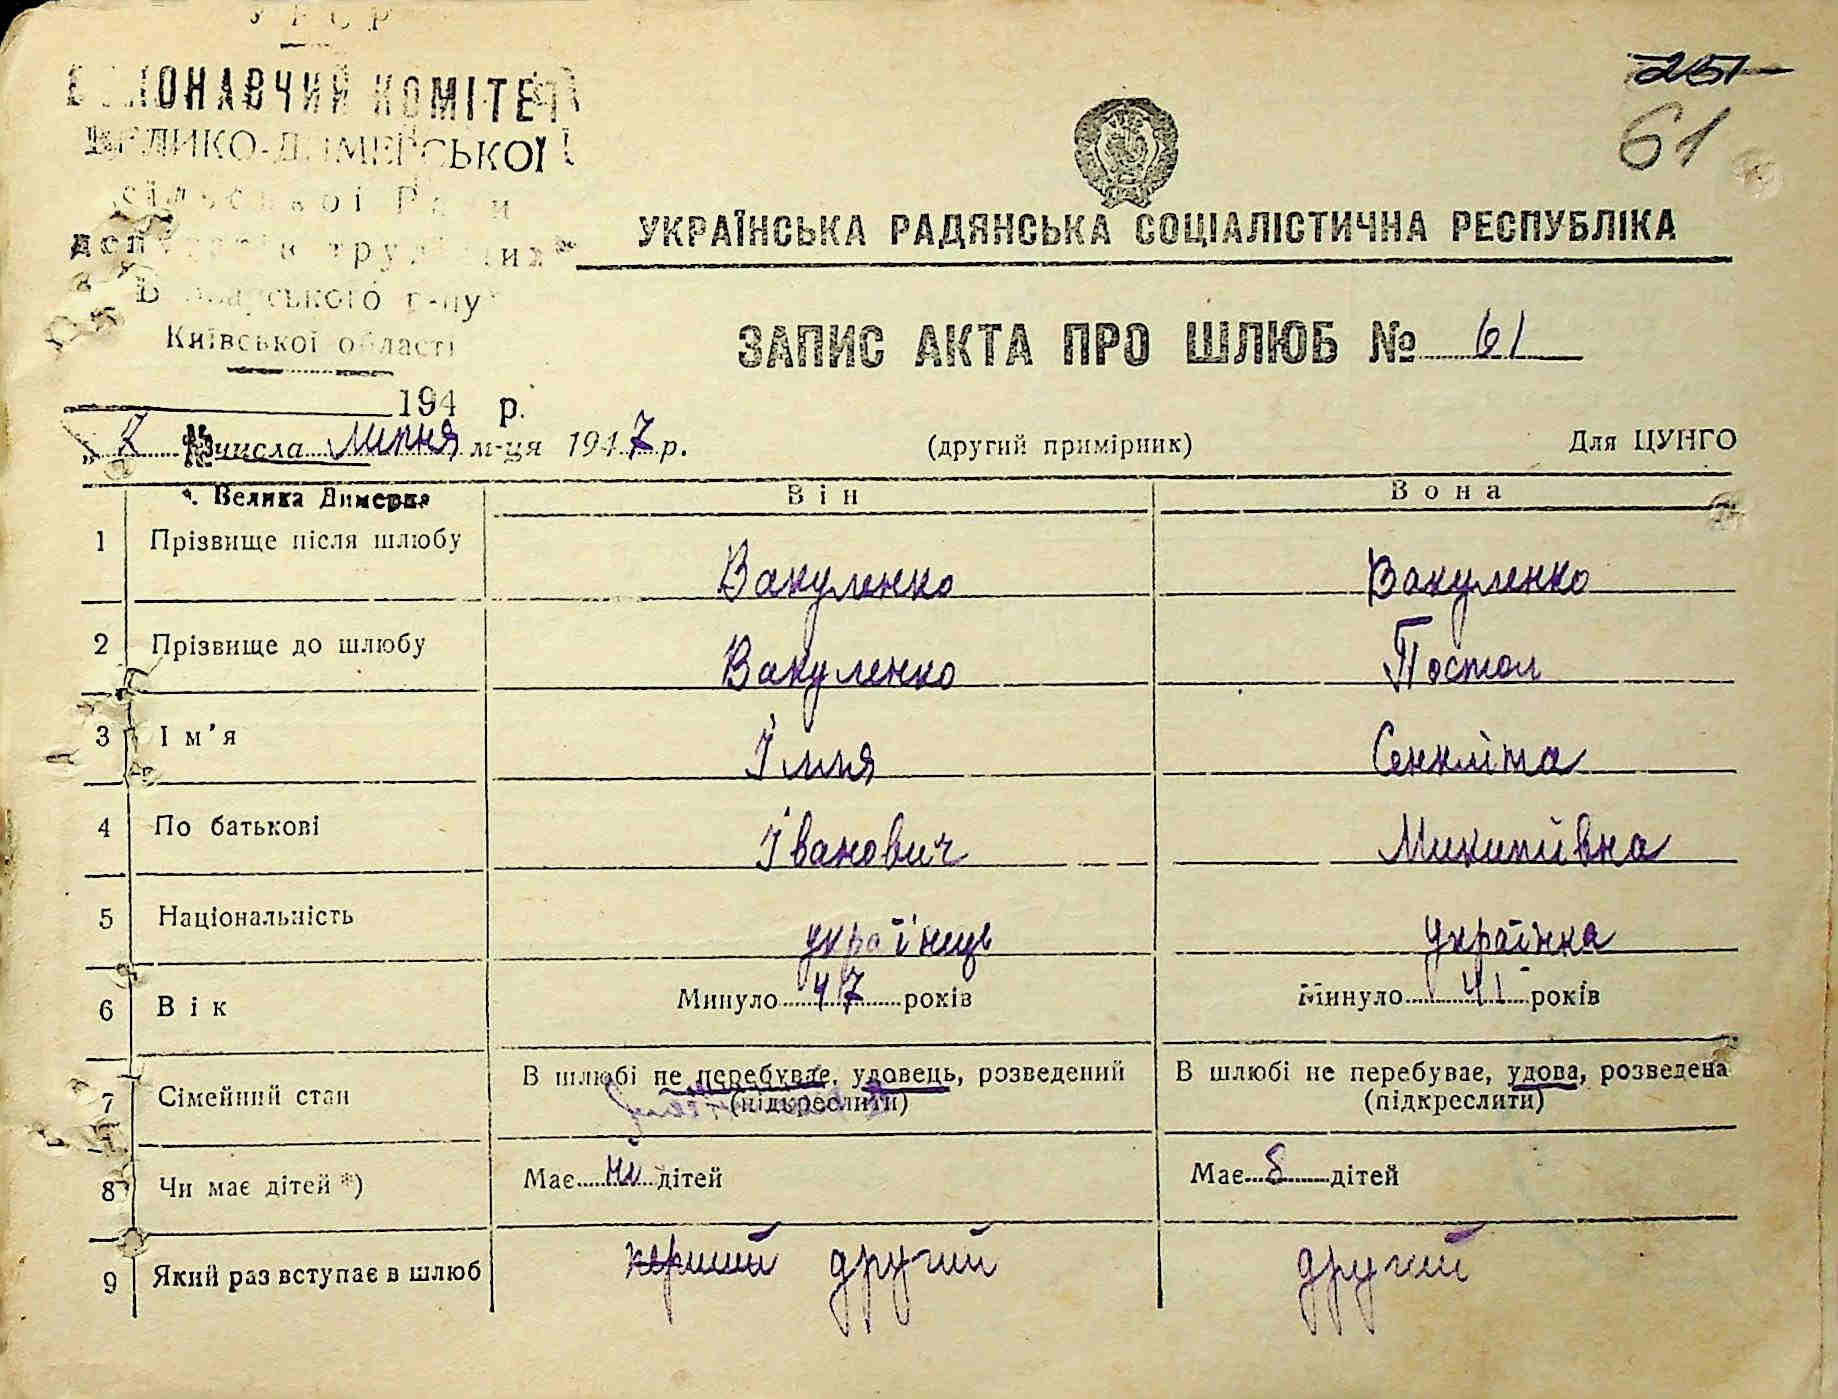 УРСР
ВИКОНАВЧИЙ КОМІТЕТ
ВЕЛИКО-ДИМЕРСЬКОЇ
сільської Ради
депутатів трудящих
Броварського р-ну
Київської області
194 р.
№
251
61
УКРАЇНСЬКА РАДЯНСЬКА СОЦІАЛІСТИЧНА РЕСПУБЛІКА
ЗАПИС АКТА ПРО ШЛЮБ № 61
числа липня м-ця 1947 р. (другий примірник) Для ЦУНГО
с. Велика Димерка Він Вона
1 Прізвище після шлюбу Вакуленко Вакуленко
2 Прізвище до шлюбу Вакуленко Постол
3 Ім'я Ілля Сенкліта
4 По батькові Іванович Микитівна
5 Національність українець українка
6 Вік Минуло 47 років Минуло 41 років
7 Сімейний стан В шлюбі не перебуває, удовець, розведений В шлюбі не перебуває, удова, розведена
(підкреслити) (підкреслити)
8 Чи має дітей *) Має ні дітей Має 8 дітей
9 Який раз вступає в шлюб перший другий другий